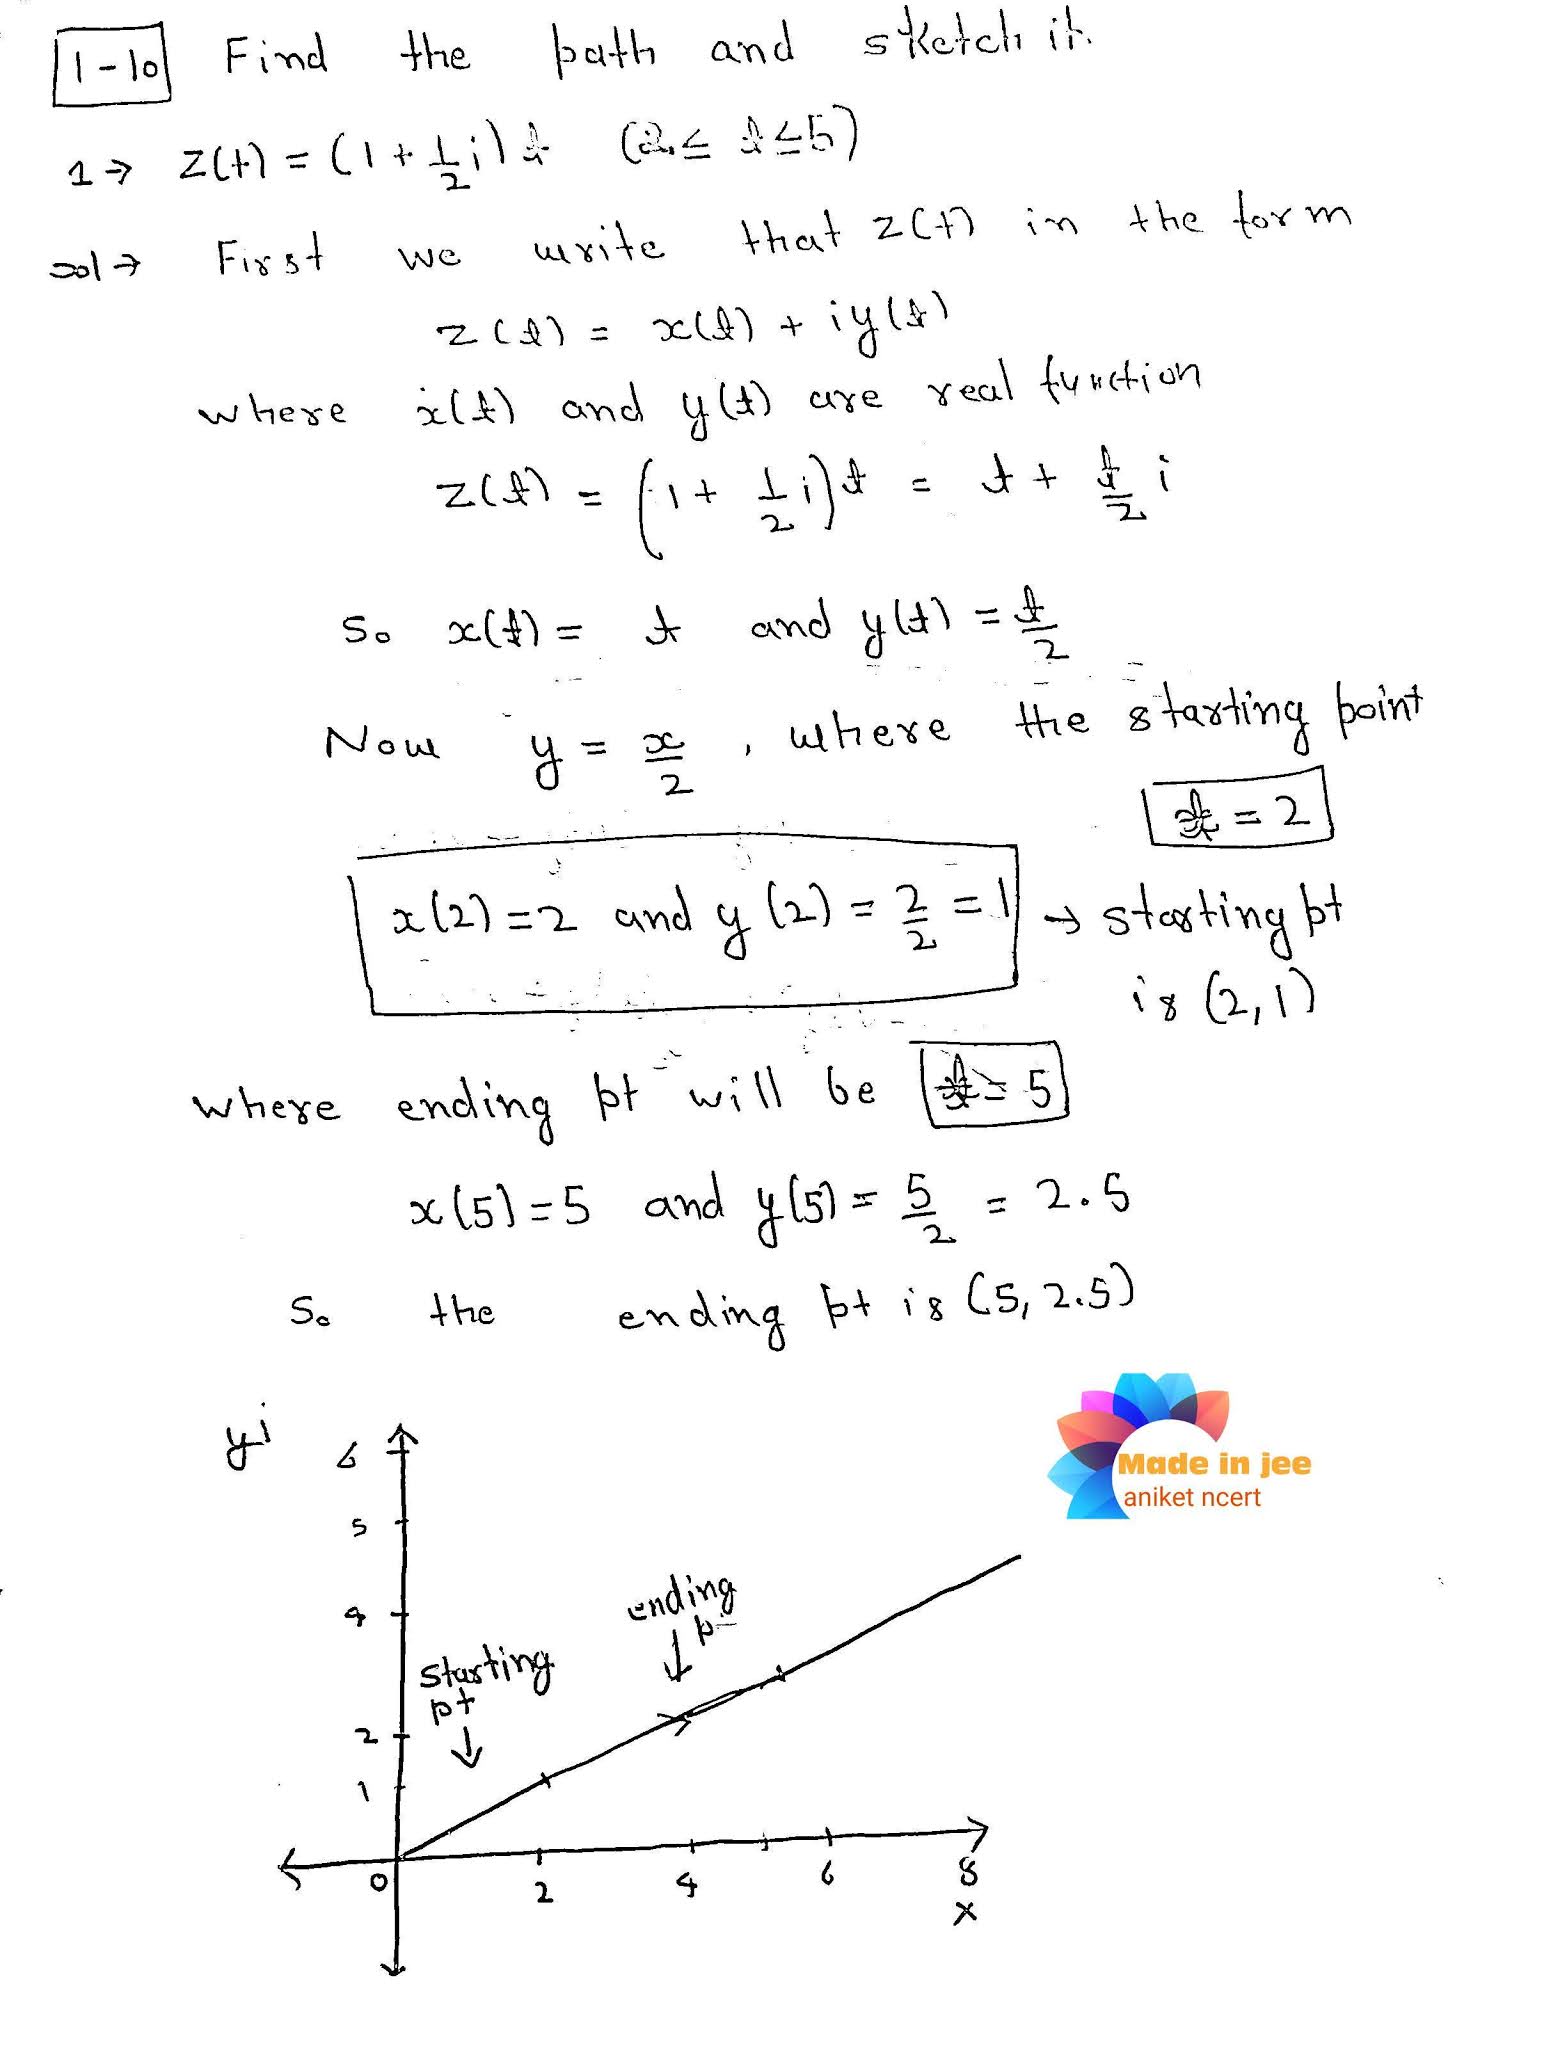 1-10 Find the path and sketch it.
1→ z(t) = (1 + 1/2 i) t (2 ≤ t ≤ 5)
sol→ First we write that z(t) in the form
z(t) = x(t) + iy(t)
where x(t) and y(t) are real function
z(t) = (1 + 1/2 i) t = t + t/2 i
So x(t) = t and y(t) = t/2
Now y = x/2, where the starting point
t = 2
x(2) = 2 and y(2) = 2/2 = 1 → starting pt
is (2, 1)
where ending pt will be t = 5
x(5) = 5 and y(5) = 5/2 = 2.5
So the ending pt is (5, 2.5)
Made in jee
aniket ncert
yi
6
5
4
2
1
starting
pt
ending
0
2
4
6
8
x